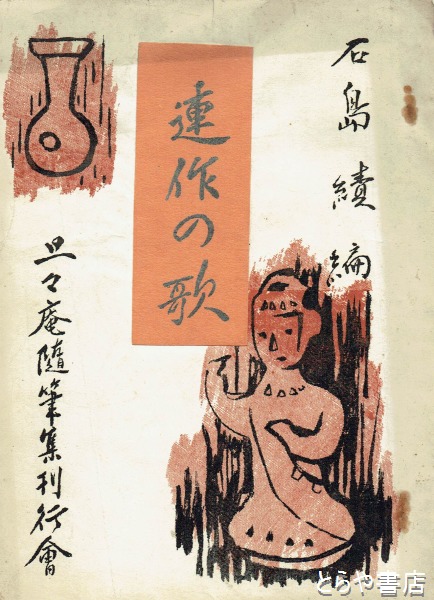 石島績編
連作の歌
旦々庵随筆集刊行會
とらや書店